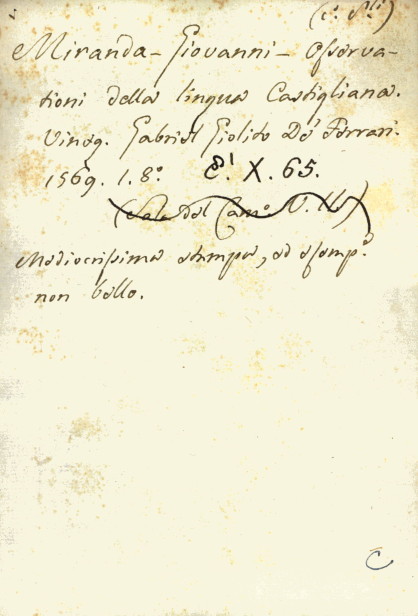 Miranda - Giovanni - Osserva-
tioni della lingua Castigliana.
Vineg. Gabriel Giolito De' Ferrari.
1569. 1. 8.º E' X. 65.
(Sala del Cam.º
Mediocrissima stampa, ed esemp.º
non bello.
C